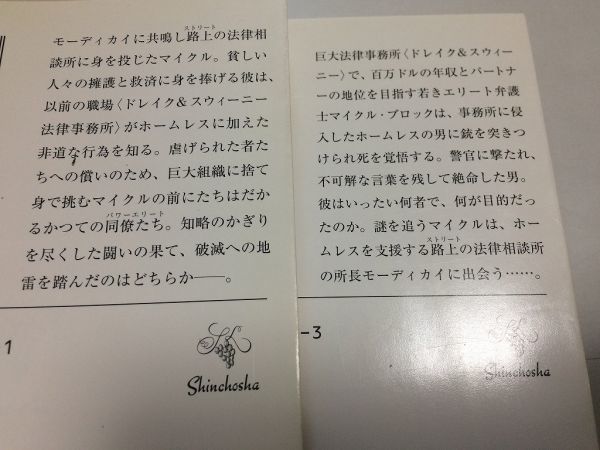 モーディカイに共鳴し路上の法律相
ストリート
談所に身を投じたマイクル。貧しい
人々の擁護と救済に身を捧げる彼は、
以前の職場〈ドレイク&スウィーニー
法律事務所〉がホームレスに加えた
非道な行為を知る。虐げられた者た
ちへの償いのため、巨大組織に捨て
身で挑むマイクルの前にたちはだか
るかつての同僚たち。知略のかぎり
パワーエリート
を尽くした闘いの果て、破滅への地
雷を踏んだのはどちらか――。
1
Shinchosha
巨大法律事務所〈ドレイク&スウィー
ニー〉で、百万ドルの年収とパートナ
ーの地位を目指す若きエリート弁護
士マイクル・ブロックは、事務所に侵
入したホームレスの男に銃を突きつ
けられ死を覚悟する。警官に撃たれ、
不可解な言葉を残して絶命した男。
彼はいったい何者で、何が目的だっ
たのか。謎を追うマイクルは、ホー
ムレスを支援する路上の法律相談所
ストリート
の所長モーディカイに出会う……。
-3
Shinchosha